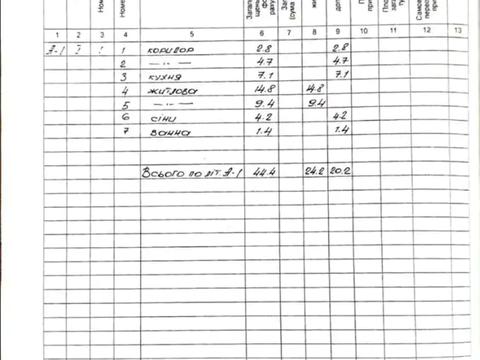 1 2 3 4 5 6 7 8 9 10 11 12 13
А-1 1 1 1 коридор 2.8 2.8
2 —"— 4.7 4.7
3 кухня 7.1 7.1
4 житлова 14.8 14.8
5 —"— 9.4 9.4
6 сіни 4.2 4.2
7 ванна 1.4 1.4
Всього по літ. А-1 44.4 24.2 20.2